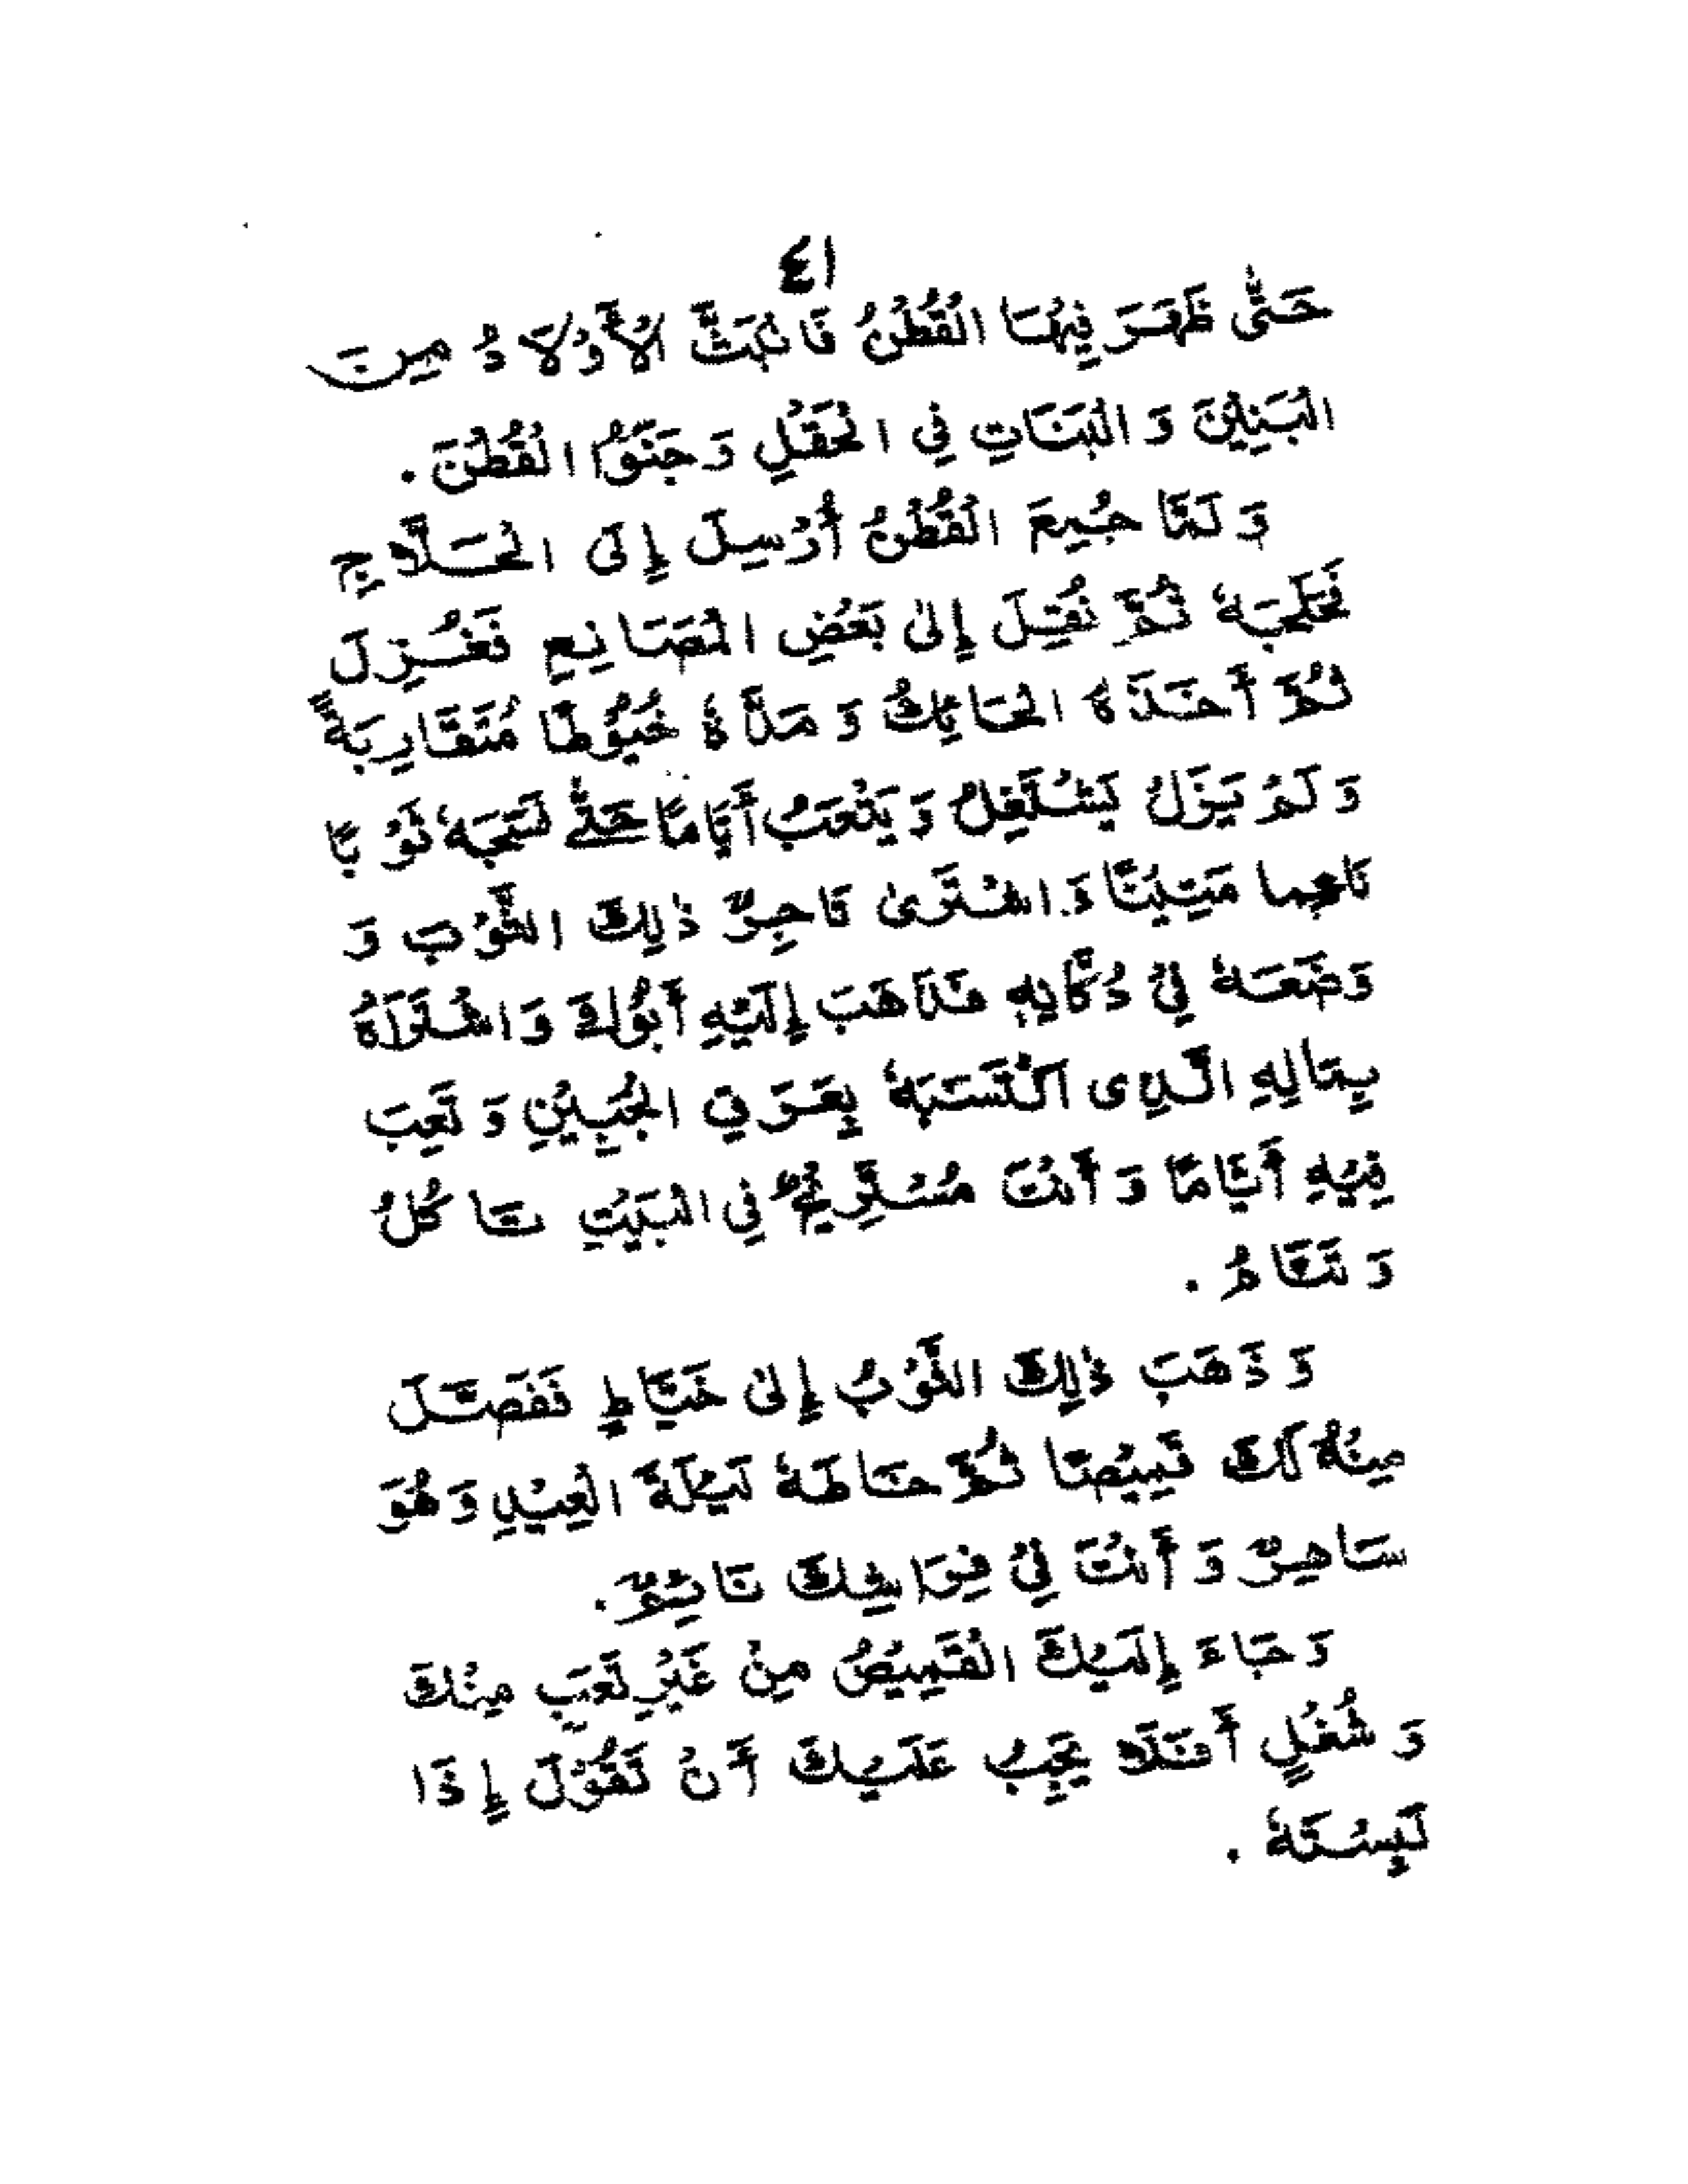 ٤١
حَتّٰى ظَهَرَ فِيْهَا الْقُطْنُ فَانْبَثَّ الْأَوْلَادُ مِنَ
الْبَنِيْنَ وَ الْبَنَاتِ فِي الْحَقْلِ وَ جَنَوُا الْقُطْنَ .
وَ لَمَّا جُمِعَ الْقُطْنُ أُرْسِلَ إِلَى الْحَلَّاجِ
فَحَلَجَهٗ ثُمَّ نُقِلَ إِلٰى بَعْضِ الْمَصَانِعِ فَغُزِلَ
ثُمَّ أَخَذَهُ الْحَائِكُ وَ مَدَّهٗ خُيُوْطًا مُتَقَارِبَةً
وَ لَمْ يَزَلْ يَشْتَغِلُ وَ يَتْعَبُ أَيَّامًا حَتّٰى نَسَجَهٗ ثَوْبًا
نَاعِما مَتِيْنًا وَ اشْتَرٰى تَاجِرٌ ذٰلِكَ الثَّوْبَ وَ
وَضَعَهٗ فِيْ دُكَّانِهٖ فَذَهَبَ إِلَيْهِ أَبُوْكَ وَ اشْتَرَاهُ
بِمَالِهِ الَّذِى اكْتَسَبَهٗ بِعَرَقِ الْجَبِيْنِ وَ تَعِبَ
فِيْهِ أَيَّامًا وَ أَنْتَ مُسْتَرِيْحٌ فِي الْبَيْتِ تَاكُلُ
وَ تَنَامُ .
وَ ذَهَبَ ذٰلِكَ الثَّوْبُ إِلٰى خَيَّاطٍ فَفَصَّلَ
مِنْهُ لَكَ قَمِيْصًا ثُمَّ خَاطَهٗ لَيْلَةَ الْعِيْدِ وَ هُوَ
سَاهِرٌ وَ أَنْتَ فِيْ فِرَاشِكَ نَائِمٌ .
وَ جَاءَ إِلَيْكَ الْقَمِيْصُ مِنْ غَيْرِ تَعَبٍ مِنْكَ
وَ شُغْلٍ أَفَلَا يَجِبُ عَلَيْكَ أَنْ تَقُوْلَ إِذَا
لَبِسْتَهٗ .